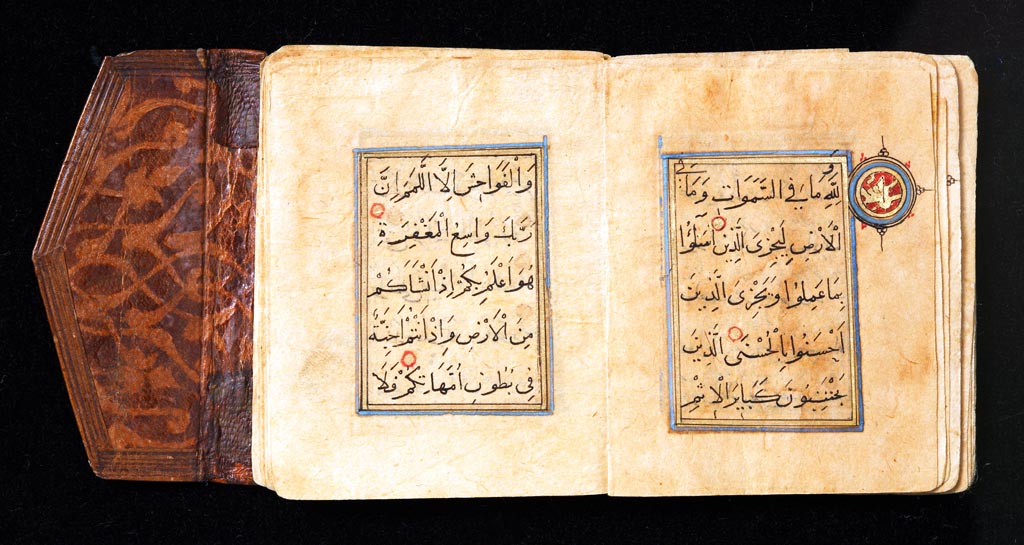 وَلِلّٰهِ مَا فِي السَّمٰوَاتِ وَمَا فِي
الْاَرْضِ لِيَجْزِيَ الَّذِينَ اَسٰٓئُوا
بِمَا عَمِلُوا وَيَجْزِيَ الَّذِينَ
اَحْسَنُوا بِالْحُسْنَى الَّذِينَ
يَجْتَنِبُونَ كَبَايِرَ الْاِثْمِ
وَالْفَوَاحِشَ اِلَّا اللَّمَمَ اِنَّ
رَبَّكَ وَاسِعُ الْمَغْفِرَةِ
هُوَ اَعْلَمُ بِكُمْ اِذْ اَنْشَاَكُمْ
مِنَ الْاَرْضِ وَاِذْ اَنْتُمْ اَجِنَّةٌ
فِي بُطُونِ اُمَّهَاتِكُمْ فَلَا